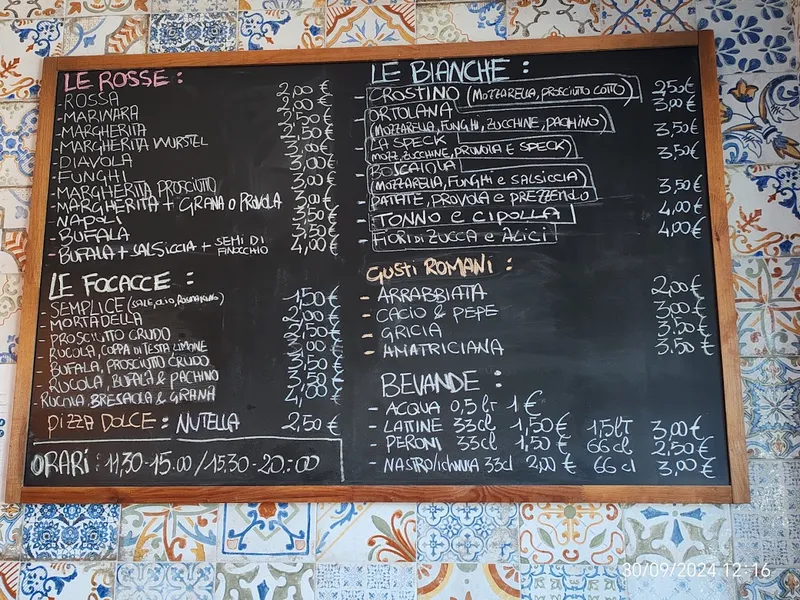 LE ROSSE :
- ROSSA 2,00 €
- MARINARA 2,00 €
- MARGHERITA 2,50 €
- MARGHERITA WURSTEL 2,50 €
- DIAVOLA 3,00 €
- FUNGHI 3,00 €
- MARGHERITA PROSCIUTTO 3,00 €
- MARGHERITA + GRANA O PROVOLA 3,00 €
- NAPOLI 3,50 €
- BUFALA 3,50 €
- BUFALA + SALSICCIA + SEMI DI FINOCCHIO 4,00 €
LE FOCACCE :
- SEMPLICE (SALE, OLIO, ROSMARINO) 1,50 €
- MORTADELLA 2,00 €
- PROSCIUTTO CRUDO 2,50 €
- RUCOLA, COPPA DI TESTA, LIMONE 3,00 €
- BUFALA, PROSCIUTTO CRUDO 3,50 €
- RUCOLA, BUFALA & PACHINO 3,50 €
- RUCOLA, BRESAOLA & GRANA 4,00 €
PIZZA DOLCE : NUTELLA 2,50 €
ORARI : 11,30-15.00 / 15.30-20.:00
LE BIANCHE :
- CROSTINO (MOZZARELLA, PROSCIUTTO COTTO) 2,50 €
- ORTOLANA 3,00 €
(MOZZARELLA, FUNGHI, ZUCCHINE, PACHINO)
- LA SPECK 3,50 €
(MOZZ, ZUCCHINE, PROVOLA E SPECK)
- BOSCAIOLA 3,50 €
(MOZZARELLA, FUNGHI E SALSICCIA)
- PATATE, PROVOLA e PREZZEMOLO 3,50 €
- TONNO e CIPOLLA 4,00 €
- FIORI DI ZUCCA e ALICI 4,00 €
GUSTI ROMANI :
- ARRABBIATA 2,00 €
- CACIO & PEPE 3,00 €
- GRICIA 3.50 €
- AMATRICIANA 3.50 €
BEVANDE :
- ACQUA 0,5 lt 1 €
- LATTINE 33cl 1,50 € 1,5 LT 3,00 €
- PERONI 33cl 1,50 € 66 cl 2,50 €
- NASTRO/ICHNUSA 33cl 2,00 € 66 cl 3,00 €
30/09/2024 12:16